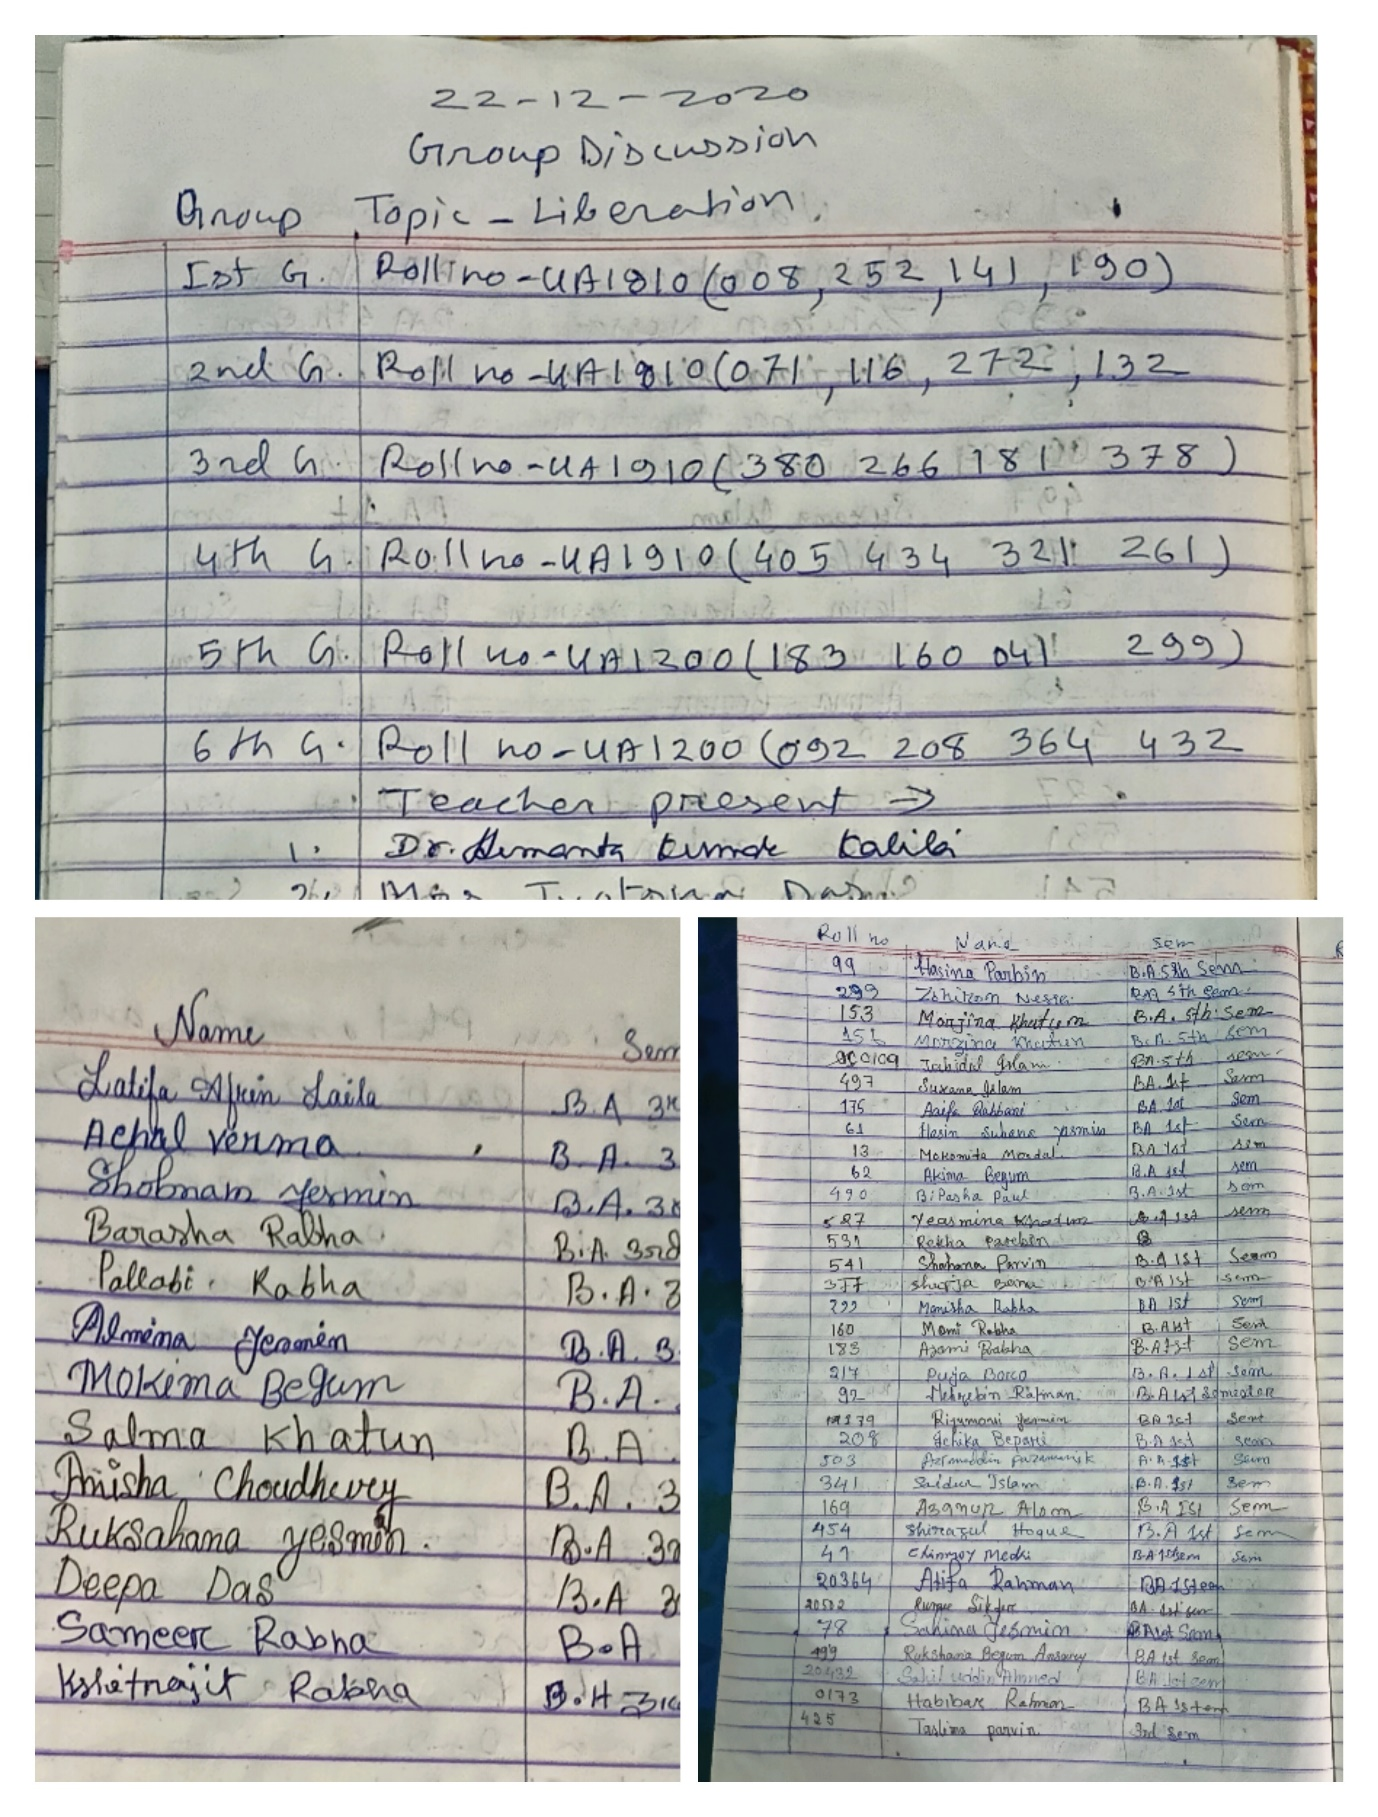 22-12-2020
Group Discussion
Group Topic - Liberation.
Ist G. Roll no - UA1810 (008, 252, 141, 190)
2nd G. Roll no - UA1810 (071, 116, 272, 132
3rd G. Roll no - UA1910 (380 266 181 378)
4th G. Roll no - UA1910 (405 434 321 261)
5th G. Roll no - UA1200 (183 160 041 299)
6th G. Roll no - UA1200 (092 208 364 432
Teacher present →
1. Dr. Hemanta Kumar Kalita
2. Das
Name Sem
Latifa Afrin Laila B.A 3r
Achal Verma B.A. 3
Shobnam Yesmin B.A. 3r
Barasha Rabha B.A. 3rd
Pallabi Rabha B.A. 3
Almina Yesmin B.A. 3
Mokima Begum B.A.
Salma Khatun B.A.
Anisha Choudhury B.A. 3
Ruksahana yesmin. B.A 3r
Deepa Das B.A 3
Sameer Rabha B.A
Kshitrajit Rabha B.A 3r
Roll no Name Sem
99 Hasina Parbin B.A 5th Sem
299 Nessa BA 5th Sem
153 Monjina Khatun B.A. 5th Sem
151 Morzina Khatun B.A. 5th Sem
Jahidul Islam BA 5th sem
497 Suxana Islam BA. 1st Sem
175 Rabbani BA. 1st Sem
61 Hasin Suhana Yasmin BA 1st Sem
13 Mondal BA 1st sem
62 Akima Begum B.A 1st sem
490 BiPasha Paul B.A. 1st sem
527 Yeasmina Khatun B.A 1st sem
531 Rekha Parbin B
541 Shahana Parvin B.A 1st Seam
377 Banu B.A 1st sem
299 Monisha Rabha BA 1st Sem
160 Momi Rabha B.A 1st Sem
183 Rabha B.A 1st Sem
217 Puja Boro B.A. 1st Sem
92 Rahman. B.A 1st Semester
Rijumoni Yesmin BA 1st Sem
208 Bepari B.A 1st sem
503 1st Sem
341 Saidur Islam B.A. 1st Sem
169 Azanur Alom B.A 1st Sem
454 Shirazul Hoque B.A 1st Sem
41 Chinmoy Medhi B.A 1st sem Sem
20364 Atifa Rahman BA 1st
20502 BA. 1st sem
78 Sahina Yesmin BA 1st Sem
499 Rukshana Begum Ansary BA 1st Sem
20432 Sahil uddin Ahmed BA 1st sem
0173 Habibar Rahman BA 1st
425 Taslima parvin. 3rd Sem